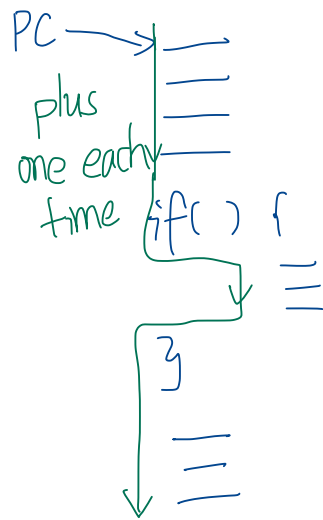 PC
plus
one each
time
if( ) {
}